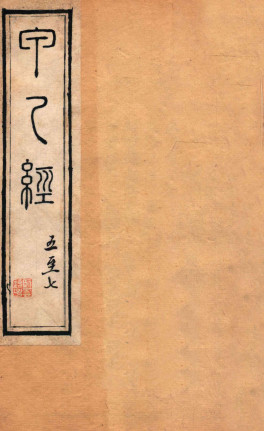 甲乙經
五至七